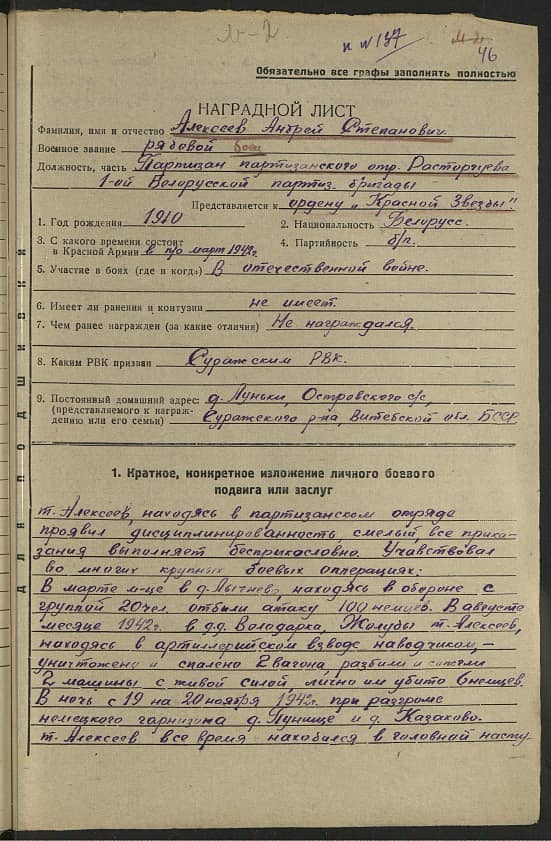 м-2
п N 137
46
Обязательно все графы заполнять полностью
НАГРАДНОЙ ЛИСТ
Фамилия, имя и отчество Алексеев Андрей Степанович
Военное звание рядовой боец
Должность, часть Партизан партизанского отр. Расторгуева
1-ой Белорусской партиз. бригады
Представляется к ордену „Красной Звезды".
1. Год рождения 1910 2. Национальность Белорусс.
3. С какого времени состоит
в Красной Армии в п/о март 1942г. 4. Партийность б/п.
5. Участие в боях (где и когда) В отечественной войне.
6. Имеет ли ранения и контузии не имеет.
7. Чем ранее награжден (за какие отличия) Не награждался.
8. Каким РВК призван Суражским РВК.
9. Постоянный домашний адрес: д. Луньки, Островского с/с,
(представляемого к награж-
дению или его семьи) Суражского р-на, Витебской обл. БССР
ДЛЯ ПОДШИВКИ
1. Краткое, конкретное изложение личного боевого
подвига или заслуг
т. Алексеев, находясь в партизанском отряде
проявил дисциплинированность, смелый, все прика-
зания выполняет бесприкословно. Учавствовал
во многих крупных боевых опперациях:
В марте м-це в д. Пытнево, находясь в обороне с
группой 20 чел. отбили атаку 100 немцев. В августе
месяце 1942г. в д.д. Володарка, Жолубы т. Алексеев,
находясь в артиллерийском взводе наводчиком, –
уничтожено и спалено 2 вагона, разбили и сожгли
2 машины с живой силой лично им убито 6 немцев.
В ночь с 19 на 20 ноября 1942г. при разгроме
немецкого гарнизона д. Лунище и д. Казаково.
т. Алексеев все время находился в головной насту